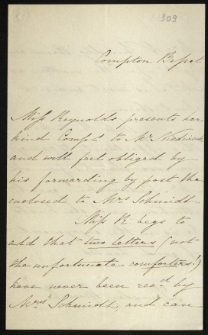 309
Compton Basset
Miss Reynolds presents her
kind Compts to Mr
and will feel obliged by
his forwarding by post the
enclosed to Mrs Schmidt.
Miss R. begs to
add that two letters (not
the unfortunate comforters!)
have never been recd. by
Mrs. Schmidt, and can